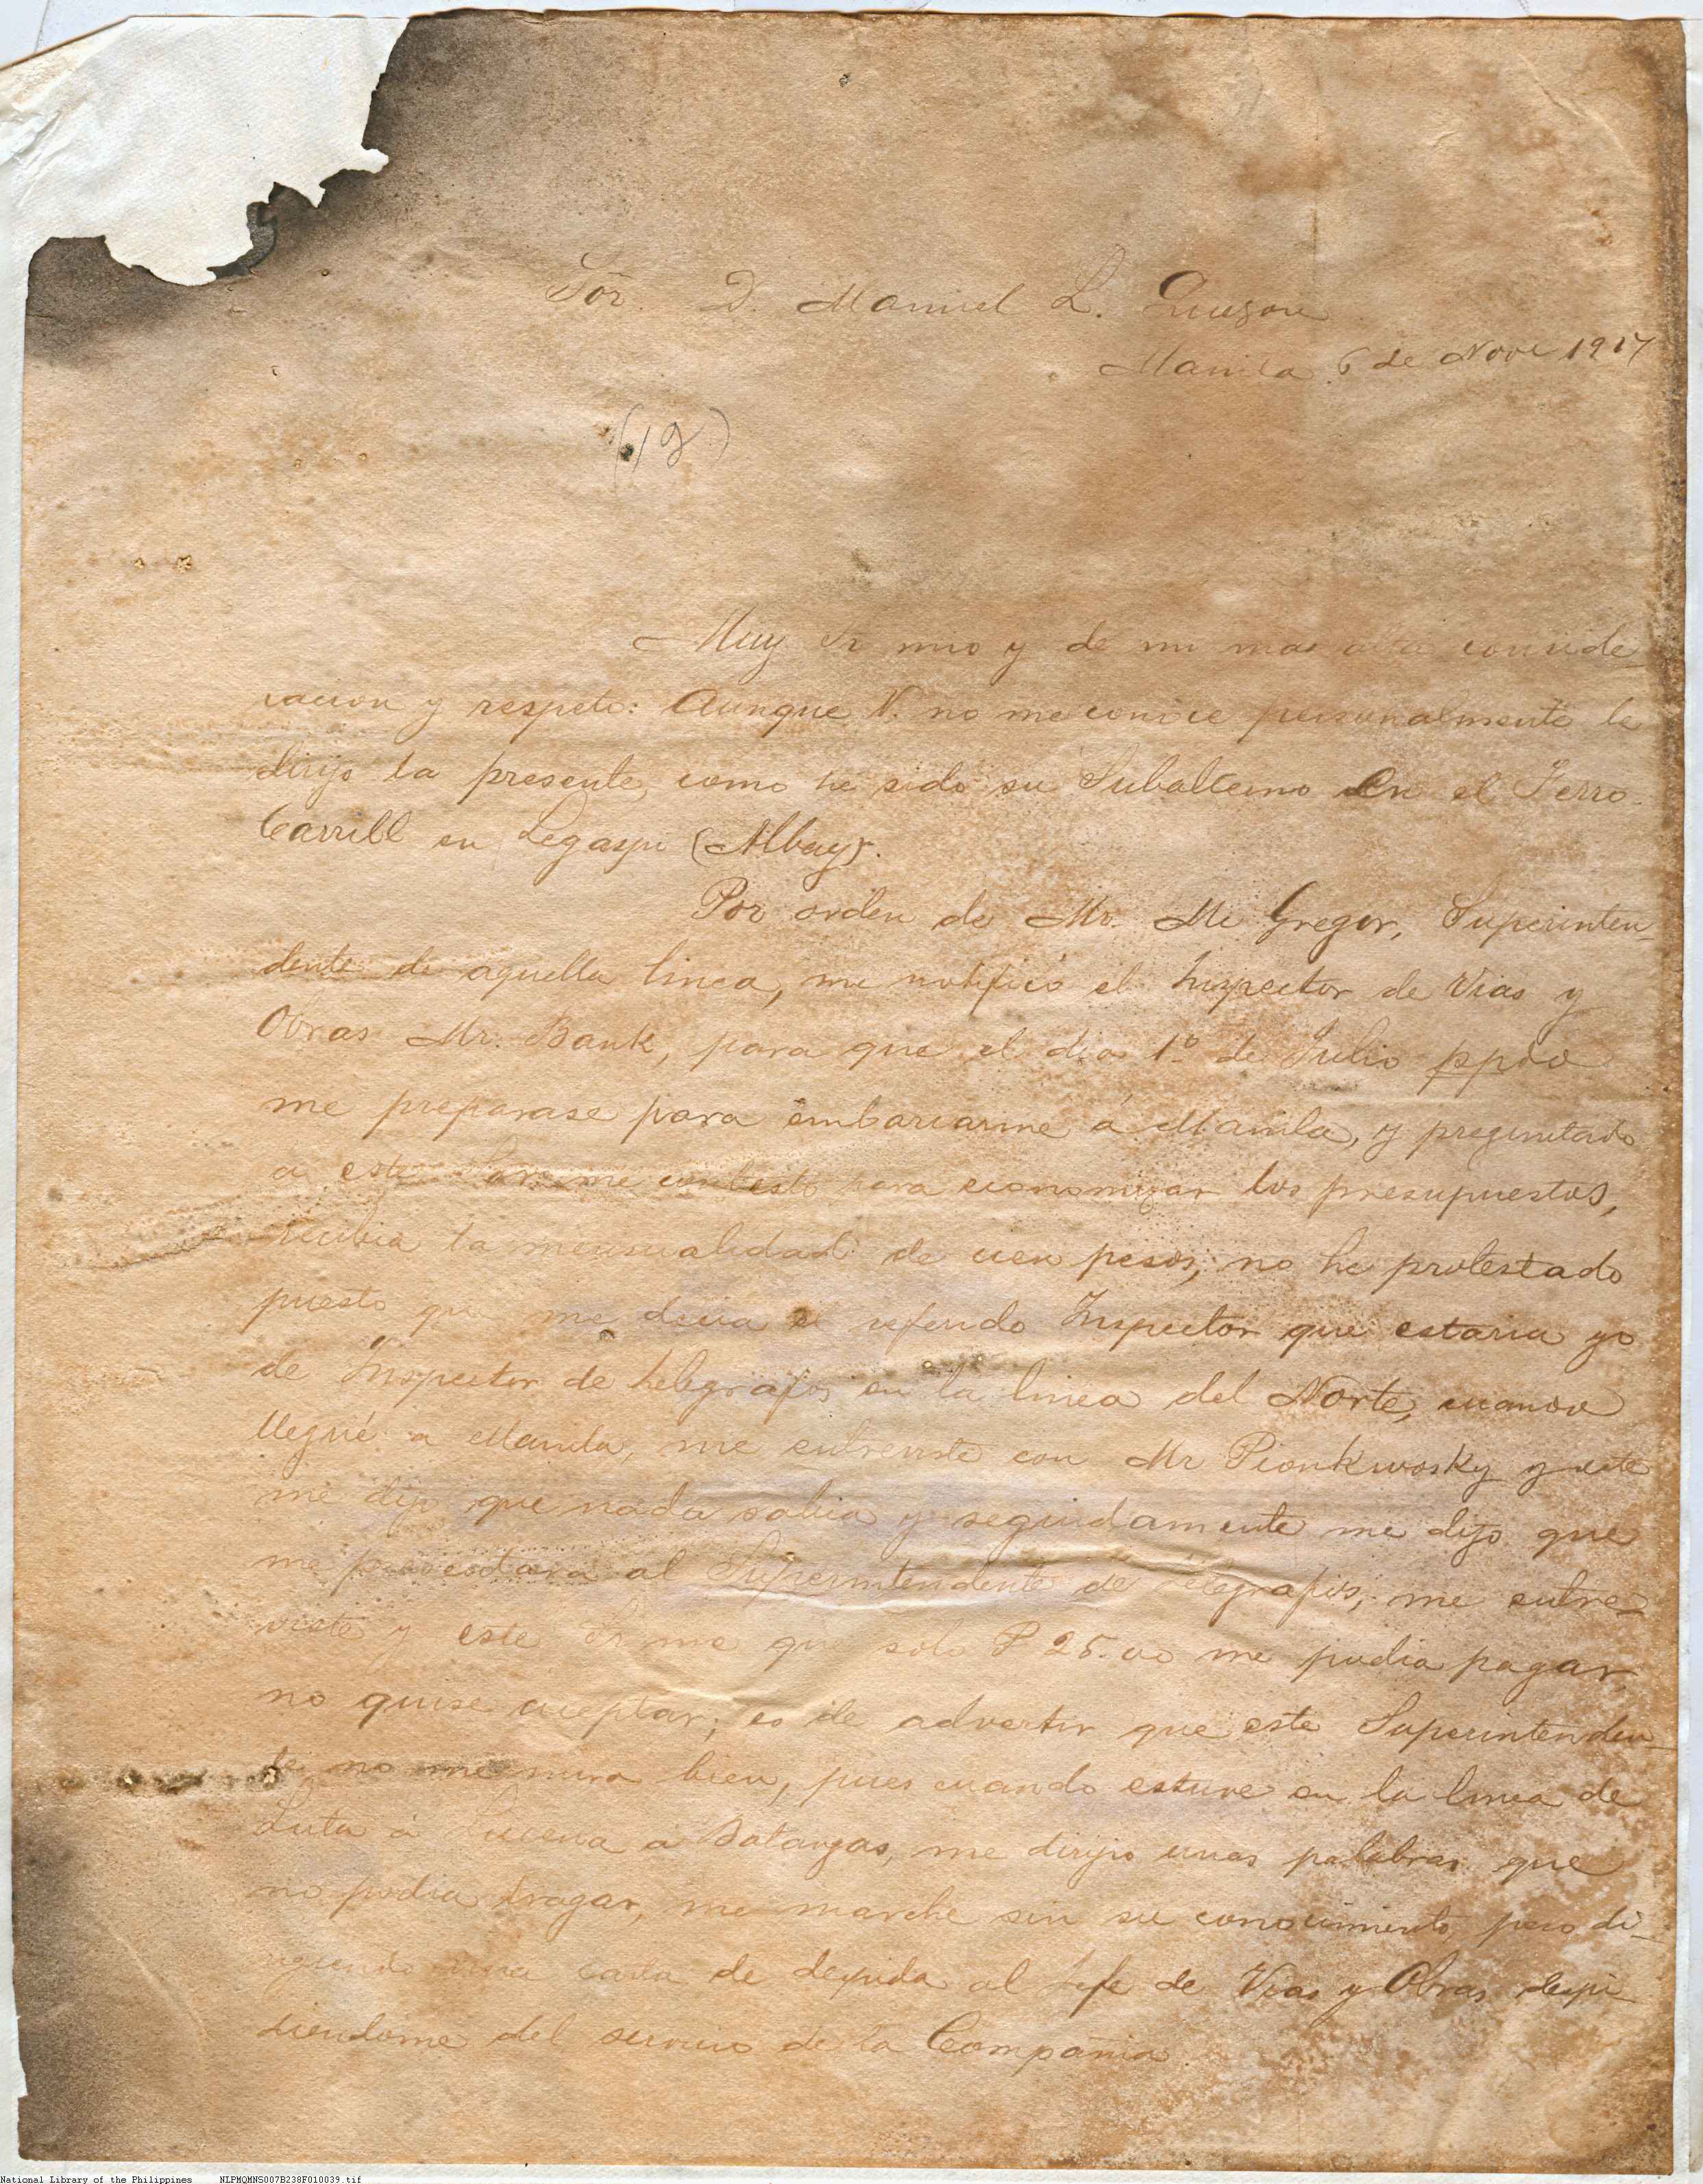 Sor. D. Manuel L. Quezon
Manila 6 de Nove 1917
(18)
Muy Sr mio y de mi mas alta conside-
racion y respeto: Aunque V. no me conoce personalmente le
dirijo la presente, como he sido su Subalterno En el Ferro-
Carrill en Legaspi (Albay).
Por orden de Mr. Mc Gregor, Superinten-
dente de aquella linea, me notificó el Inspector de Vias y
Obras Mr. Bank, para que el dia 1º de Julio ppdo
me preparase para embarcarme á Manila, y preguntado
a este Sor me contestó para economizar los presupuestos,
recibia la mensualidad de cien pesos; no he protestado
puesto que me decia el referido Inspector que estaria yo
de Inspector de telegrafos en la linea del Norte, cuando
llegué a Manila, me entreviste con Mr Pionkwosky y este
me dijo que nada sabia y seguidamente me dijo que
me presentara al Superintendente de telegrafos, me entre-
viste y este Sr me que solo P 25.00 me podia pagar,
no quise aceptar; es de advertir que este Superintenden-
te no me mira bien, pues cuando estuve en la linea de
Luta á Lucena a Batangas, me dirijio unas palabras que
no podia tragar, me marche sin su conocimiento, pero di-
rigiendo una carta de despida al Jefe de Vias y Obras despi-
diendome del servicio de la Compañia.
National Library of the Philippines NLPMQMNS007B238F010039.tif